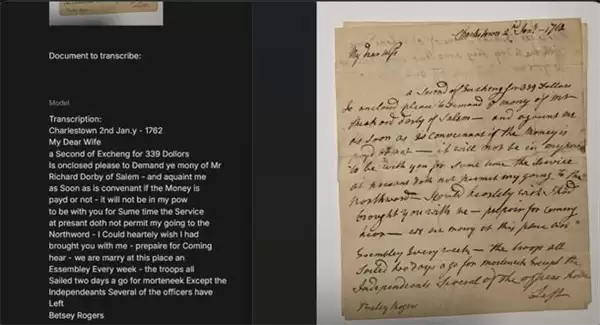 Document to transcribe:
Model
Transcription:
Charlestown 2nd Jan.y - 1762
My Dear Wife
a Second of Excheng for 339 Dollors
Is onclosed please to Demand ye mony of Mr
Richard Dorby of Salem - and aquaint me
as Soon as is convenant if the Money is
payd or not - it will not be in my pow
to be with you for Sume time the Service
at presant doth not permit my going to the
Northword - I Could heartely wish I had
brought you with me - prepaire for Coming
hear - we are marry at this place an
Essembley Every week - the troops all
Sailed two days a go for morteneek Except the
Independeants Several of the officers have
Left
Betsey Rogers
Charlestown 2nd Jany - 1762
My Dear Wife
a Second of Excheng for 339 Dollors
Is onclosed please to Demand ye mony of Mr
Dorby of Salem - and aquaint me
as Soon as is Convenant if the Money is
payd or not - it will not be in my pow
to be with you for Sume time the Service
at presant doth not permit my going to the
Northword - I Could heartely wish I had
brought you with me - prepair for Coming
hear - we are mery at this place an
Essembley Every week - the troops all
Sailed two days a go for morteneek Except the
Independants Several of the officers have
Left
Betsey Rogers